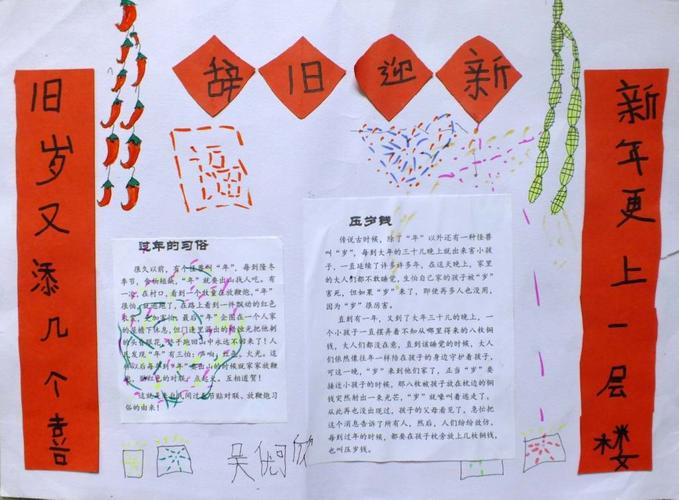 辞旧迎新
旧岁又添几个喜
新年更上一层楼
福
过年的习俗
很久以前，有个怪兽叫“年”，每到隆冬
季节，食物短缺，“年”就要出山找人吃。有
一次，在村口，看到一个放童在放鞭炮，“年”
很怕，就逃跑了，在路上看到一件飘动的红色
来宝，更加害怕，最后“年”企图在一个人家
的屋檐下休息，但门缝里溢出的
不来了！人
们发现“年”有三怕：声响，红色，火光。这
样以后每年到“年”要出山的时候就家家放鞭
炮，贴红色的对联，点起火，互相道贺！
这就是来自民间过春节贴对联、放鞭炮习
俗的由来！
压岁钱
传说古时候，除了“年”以外还有一种怪兽
叫“岁”，每到大年的三十儿晚上就出来害小孩
子，一直延续了许多许多年，在这天晚上，家里
的大人们都不敢睡觉，生怕自己家的孩子被“岁”
害死，但如果“岁”来了，即使再多人也没用，
因为“岁”很厉害。
直到有一年，又到了大年三十儿的晚上，一
个小孩子一直摆弄着不知从哪里得来的八枚铜
钱，大人们都没在意，直到该睡觉的时候，大人
们依然像往年一样陪在孩子的身边守护着孩子，
可这一晚，“岁”来到他们家了，正当“岁”要
接近小孩子的时候，那八枚被孩子放在枕边的铜
钱突然射出一束光芒，“岁”就嚎叫着逃走了，
从此再也没出现过，孩子的父母看见了，急忙把
这个消息告诉了所有人，然后，人们纷纷效仿，
每到过年的时候，都要在孩子枕旁放上几枚铜钱，
也叫压岁钱。